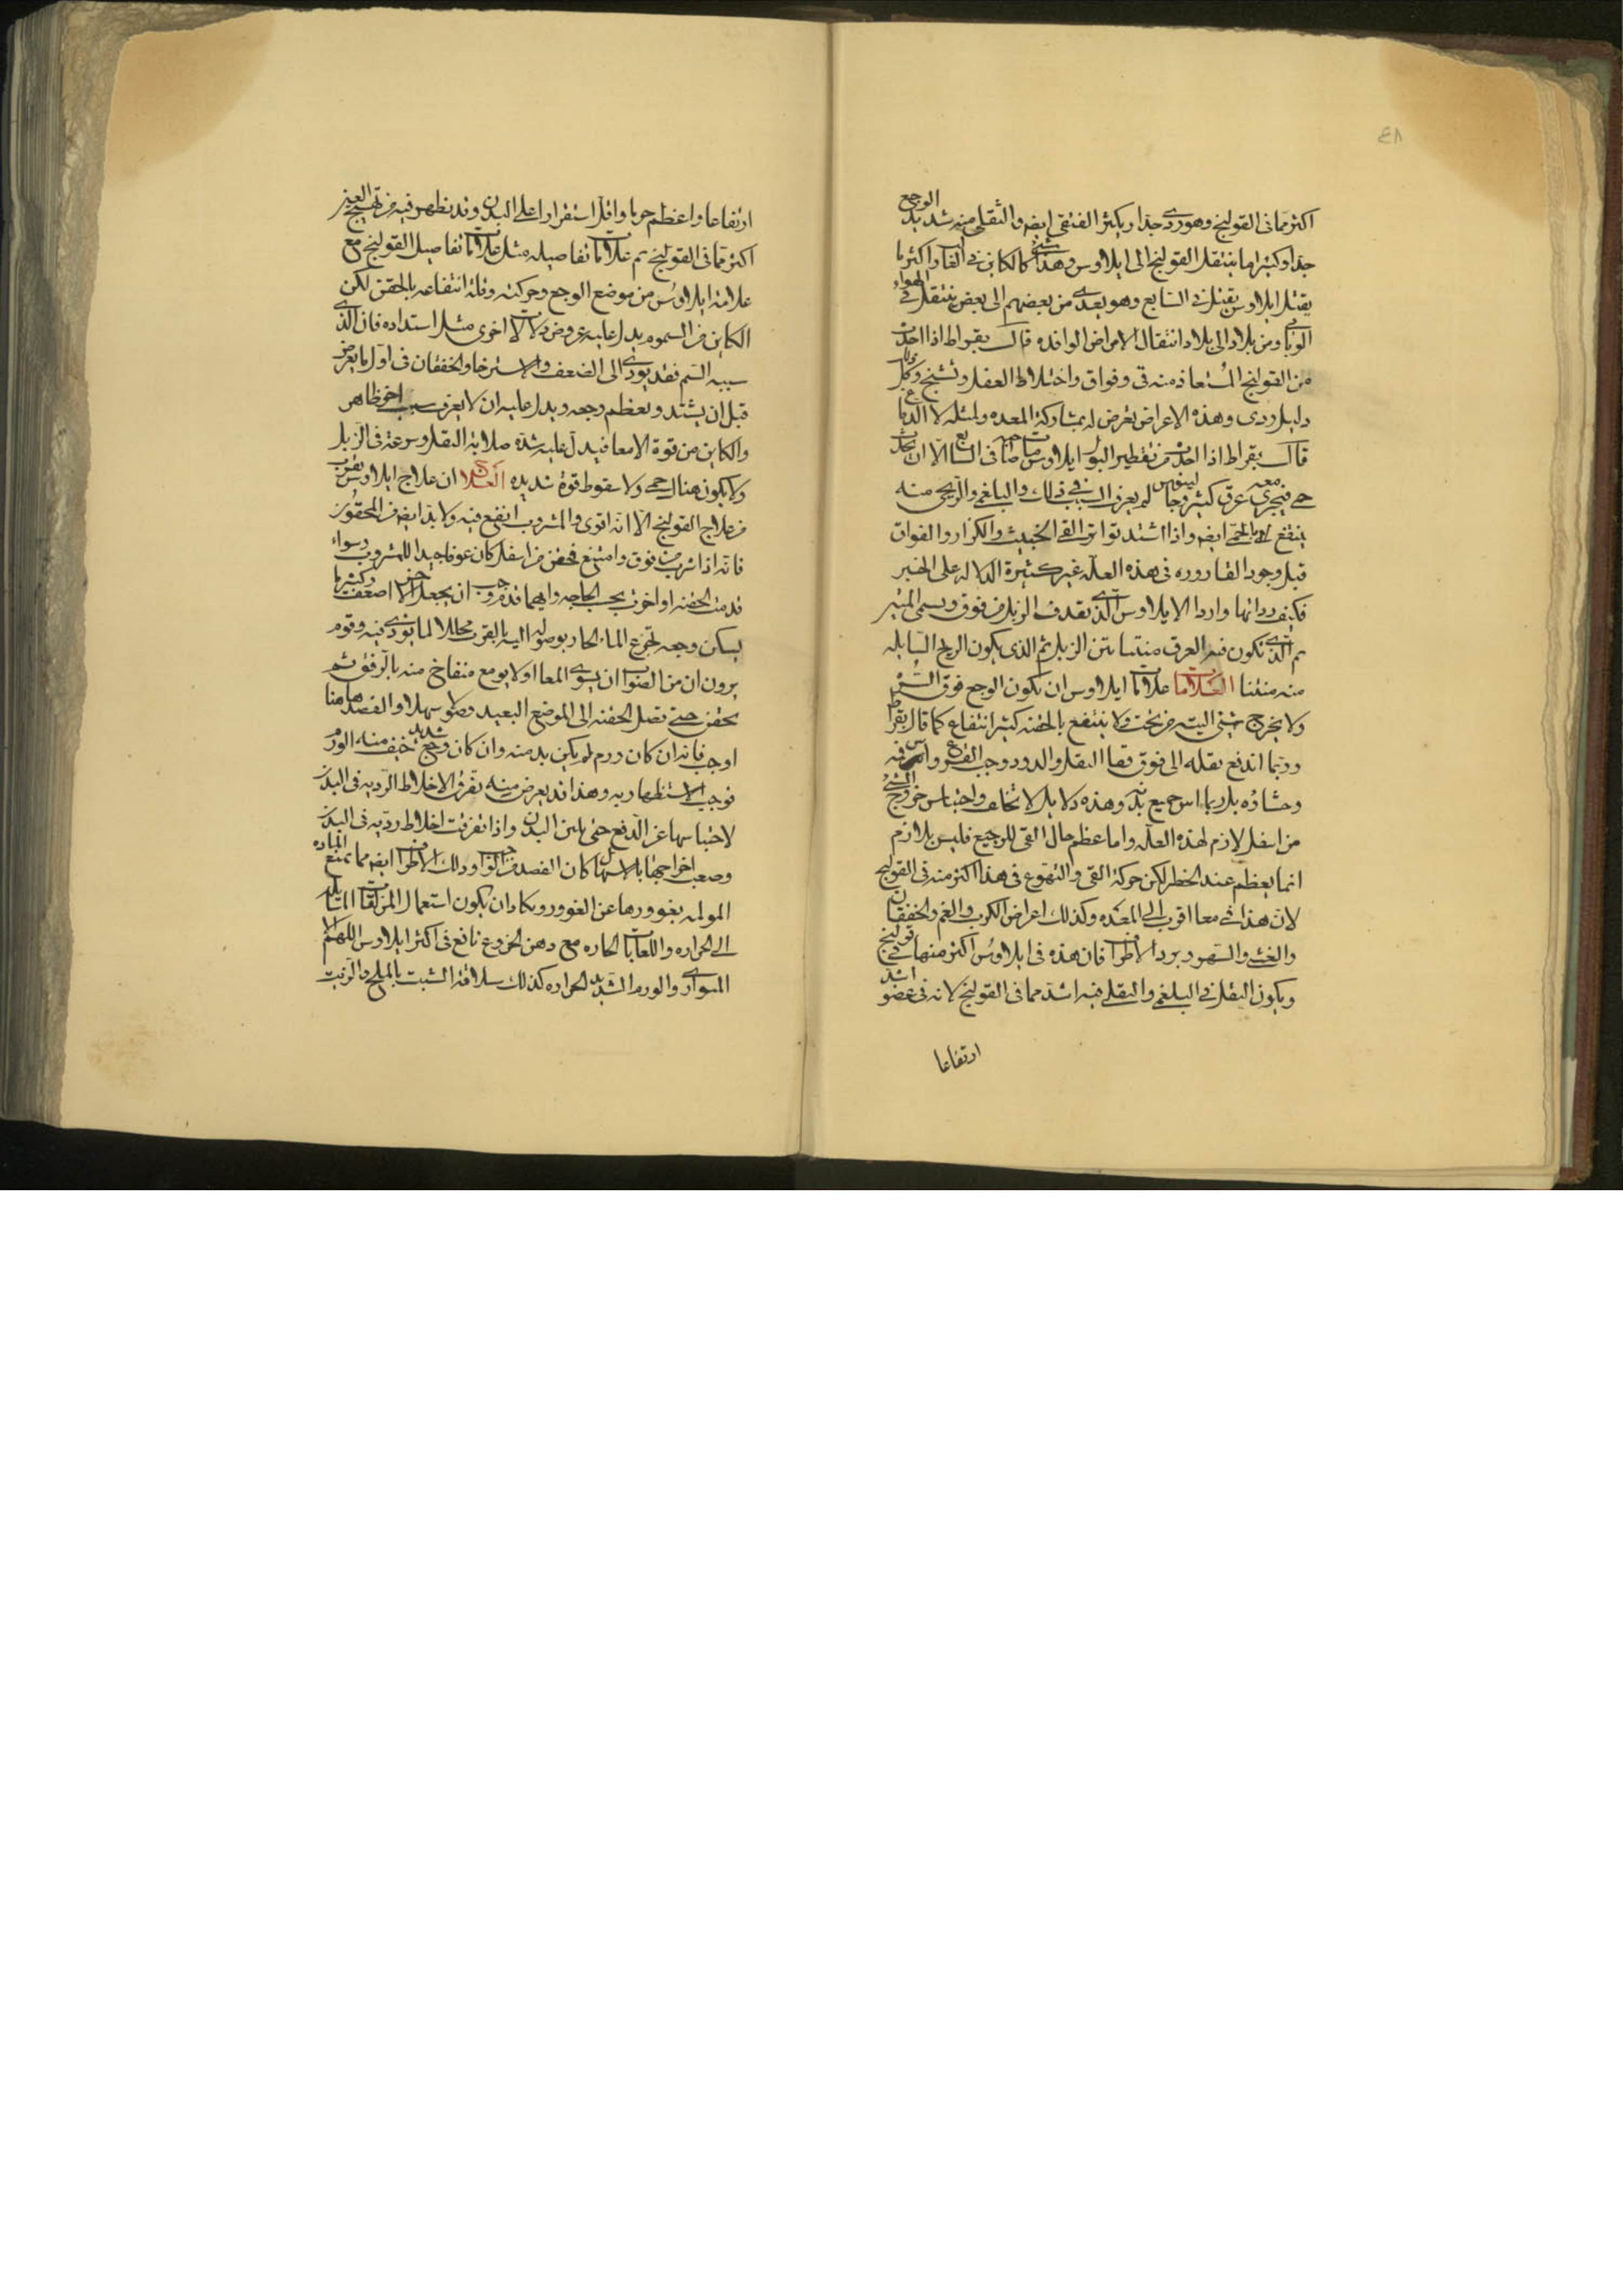 ٤٨
اكثر مما فى القولنج وهو ردى جدا ويكثر الفتقى ايضا والثقلى منه شديد الوجع
جدا وكثيرا ما ينتقل القولنج الى ايلاوس وهذا شئ كالكاين فى الغا واكثر ما
يقتل ايلاوس يقتل فى السابع وهو يعدى من بعضهم الى بعض ينتقل فى الهواء
الوبائى ومن بلاد الى بلاد انتقال الامراض الوافده قال بقراط اذا احدث
من القولنج المستعاذ منه قى وفواق واختلاط العقل وتشنج وكل
دليل ردى وهذه الاعراض تعرض له بمشاركة المعده ولمثله لا الدماغ
قال بقراط اذا احدث من تقطير البول ايلاوس مات صاحبه فى السابع الا ان يحدث
حمى فيجرى معه عرق كثير وجالينوس لم يعرف السبب فى ذلك والبلغمى والريحى منه
ينتفع بالحمى ايضا واذا اشتد تواتر القى الخبيث والكزاز والفواق
قتل وجود القاروره فى هذه العله غير كثيرة الدلاله على الخير
فكيف رداتها واردا الايلاوس الذى يقذف الزبل من فوق ويسمى المنتن
ثم الذى تكون فيه العرق منتنا نتن الزبل ثم الذى يكون الريح السابله
منه منتنا العلامات علامات ايلاوس ان تكون الوجع فوق السره
ولا يخرج شئ البته من تحت ولا ينتفع بالحقنه كثير انتفاع كما قال بقراط
وربما اندفع ثقله الى فوق فقا الثقل والدود وحب القرع وانتن فمه
وجشاؤه بل ربما انتن جميع بدنه وهذه دلايل لا تخلف واحتباس خروج الشئ
من اسفل لازم لهذه العله واما عظم حال القى للرجيع فليس بلازم
انما يعظم عند الخطر لكن حركة القى والتهوع فى هذا اكثر منه فى القولنج
لان هذا فى معا اقرب الى المعده وكذلك اعراض الكرب والغم والخفقان
والغشى والسهر وبرد الاطراف فان هذه فى ايلاوس اكثر منها فى قولنج
ويكون الثقل فى البلغمى والثقلى فيه اشد مما فى القولنج لانه فى عضو اشد
ارتفاعا
ارتفاعا واعظم جرما واقل استقرارا على البدن وقد يظهر فيه من تهيج العين
اكثر مما فى القولنج ثم علامات تفاصيله مثل علامات تفاصيل القولنج مع
علامة ايلاوس من موضع الوجع وحركته وقلة انتفاعه بالحقن لكن
الكاين من السموم يدل عليه عروض دلالات اخرى مثل استداده فان الذى
سببه السم فقد يودى الى الضعف والاسترخا والخفقان فى اول ما يعرض
قبل ان يشتد ويعظم وجعه ويدل عليه ان لا يعرف سبب اخر ظاهر
والكاين من قوة الامعا فيدل عليه شدة صلابة الثقل وسرعته فى الزبل
ولا يكون هناك حمى ولا سقوط قوة شديده العلاج ان علاج ايلاوس يقرب
من علاج القولنج الا انه اقوى والمشروب انفع فيه ولا بد ايضا من المحقون
فانه اذا شرب من فوق وامتنع فحقن من اسفل كان عونا جيدا للمشروب وسواء
قدمت الحقنه او اخرت بحب الحاجه وايهما قدم وجب ان يجعل الاخر اضعف وكثيرا ما
يسكن وجعه تجرع الماء الحار بوصوله اليه بالقرب محللا لما يوذى فيه وقوم
يرون ان من الصواب ان يسوى المعا اولا يومع منفاخ منه بالرفق ثم
يحقن حتى تصل الحقنه الى الموضع البعيد وصولا سهلا والفصد هاهنا
اوجب فانه ان كان ورم لم يكن بد منه وان كان وجع شديد خيف منه الورم
فوجب الاستظهار به وهذا قد يعرض منه تفرق الاخلاط الرديه فى البدن
لاحتباسها عن الدفع حتى يلين البدن واذا تفرقت اخلاط رديه فى البدن
وصعب اخراجها بالاسهال كان الفصد من الواجب ودلك الاطراف ايضا مما تمنع الماده
المولمه بغوورها عن الغوور ويكاد ان يكون استعمال المزلقات المايله
الى الحراره واللعابات الحاره مع دهن الخروع نافع فى اكثر ايلاوس اللهم الا
المرارى والورم الشديد الحراره كذلك سلاقة الشبت بالملح والزيت